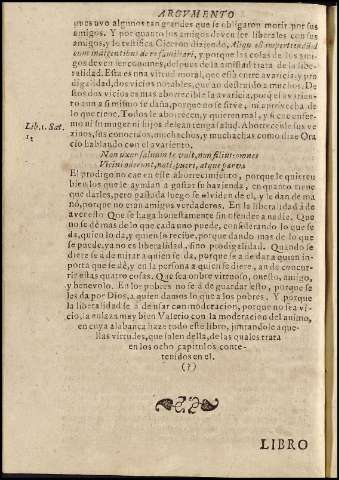 ARGVMENTO
ques uvo algunos tan grandes que se obligaron morir por sus
amigos. Y por quanto los amigos deven ser liberales con sus
amigos, y lo testifica Ciceron diziendo, Aliqu est impertiendũ
cum indigentibus de re familiari, y porque las cosas de los ami-
gos deven ser concones, despues de la amistad trata de la libe-
ralidad. Esta es una virtud moral, que está entre avaricia, y pro
digalidad, dos vicios notables, que an destruido a muchos. De
stos dos vicios es mas aborrecible la avaricia, porq̃ el avarien-
to aun a si mismo se daña, porque no se sirve, ni aprovecha de
lo que tiene. Todos le aborrecen, y quieren mal, y si cae enfer-
mo ni su muger ni hijos desean tenga salud. Aborrecenle sus ve
zinos, sus conocidos, muchachos, y muchachas como dize Ora
cio hablando con el avariento.
Lib. 1. Sat.
Non uxor salvum te vult, non filius: omnes
Vicini oderunt, noti, pueri, atque puellæ
El prodigo no cae en este aborrecimiento, porque le quieren
bien los que le ayudan a gastar su hazienda, en quanto tiene
que darles, pero passada luego se olvidan de el, y le dan de ma
nó, porque no eran amigos verdaderos. En la liberalidad á de
aver esto Que se haga honestamente sin ofender a nadie. Que
no se dé mas de lo que cada uno puede, considerando lo que se
da, quien lo da, y quien se recibe, porque dando mas de lo que
se puede, ya no es liberalidad, sino prodigalidad. Quando se
diere se á de mirar a quien se da, porque se á de dar a quien im
porta que se dé, y en la persona a quien se diere, an de concu-
rrir estas quatro cosas. Que sea onbre virtuoso, onesto, amigo,
y benevolo. En los pobres no se á de guardar esto, porque se
les da por Dios, a quien damos lo que a los pobres. Y porque
la liberalidad se á de usar con moderacion, porque no sea vi-
cio, la enlaza muy bien Valerio con la moderacion del animo,
en cuya alabança haze todo este libro, juntandole aque-
llas virtudes, que salen della, de las quales trata
en los ocho capitulos conte-
tenidos en el.
(?)
LIBRO